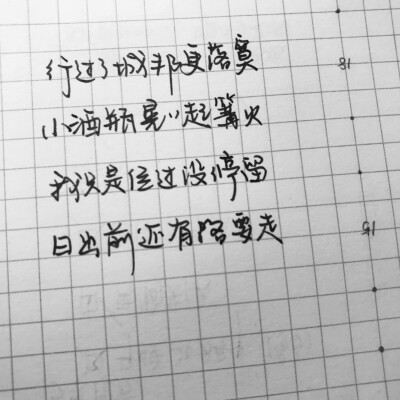 行过了城邦更落寞
小酒瓶晃起篝火
我只是经过没停留
日出前还有路要走